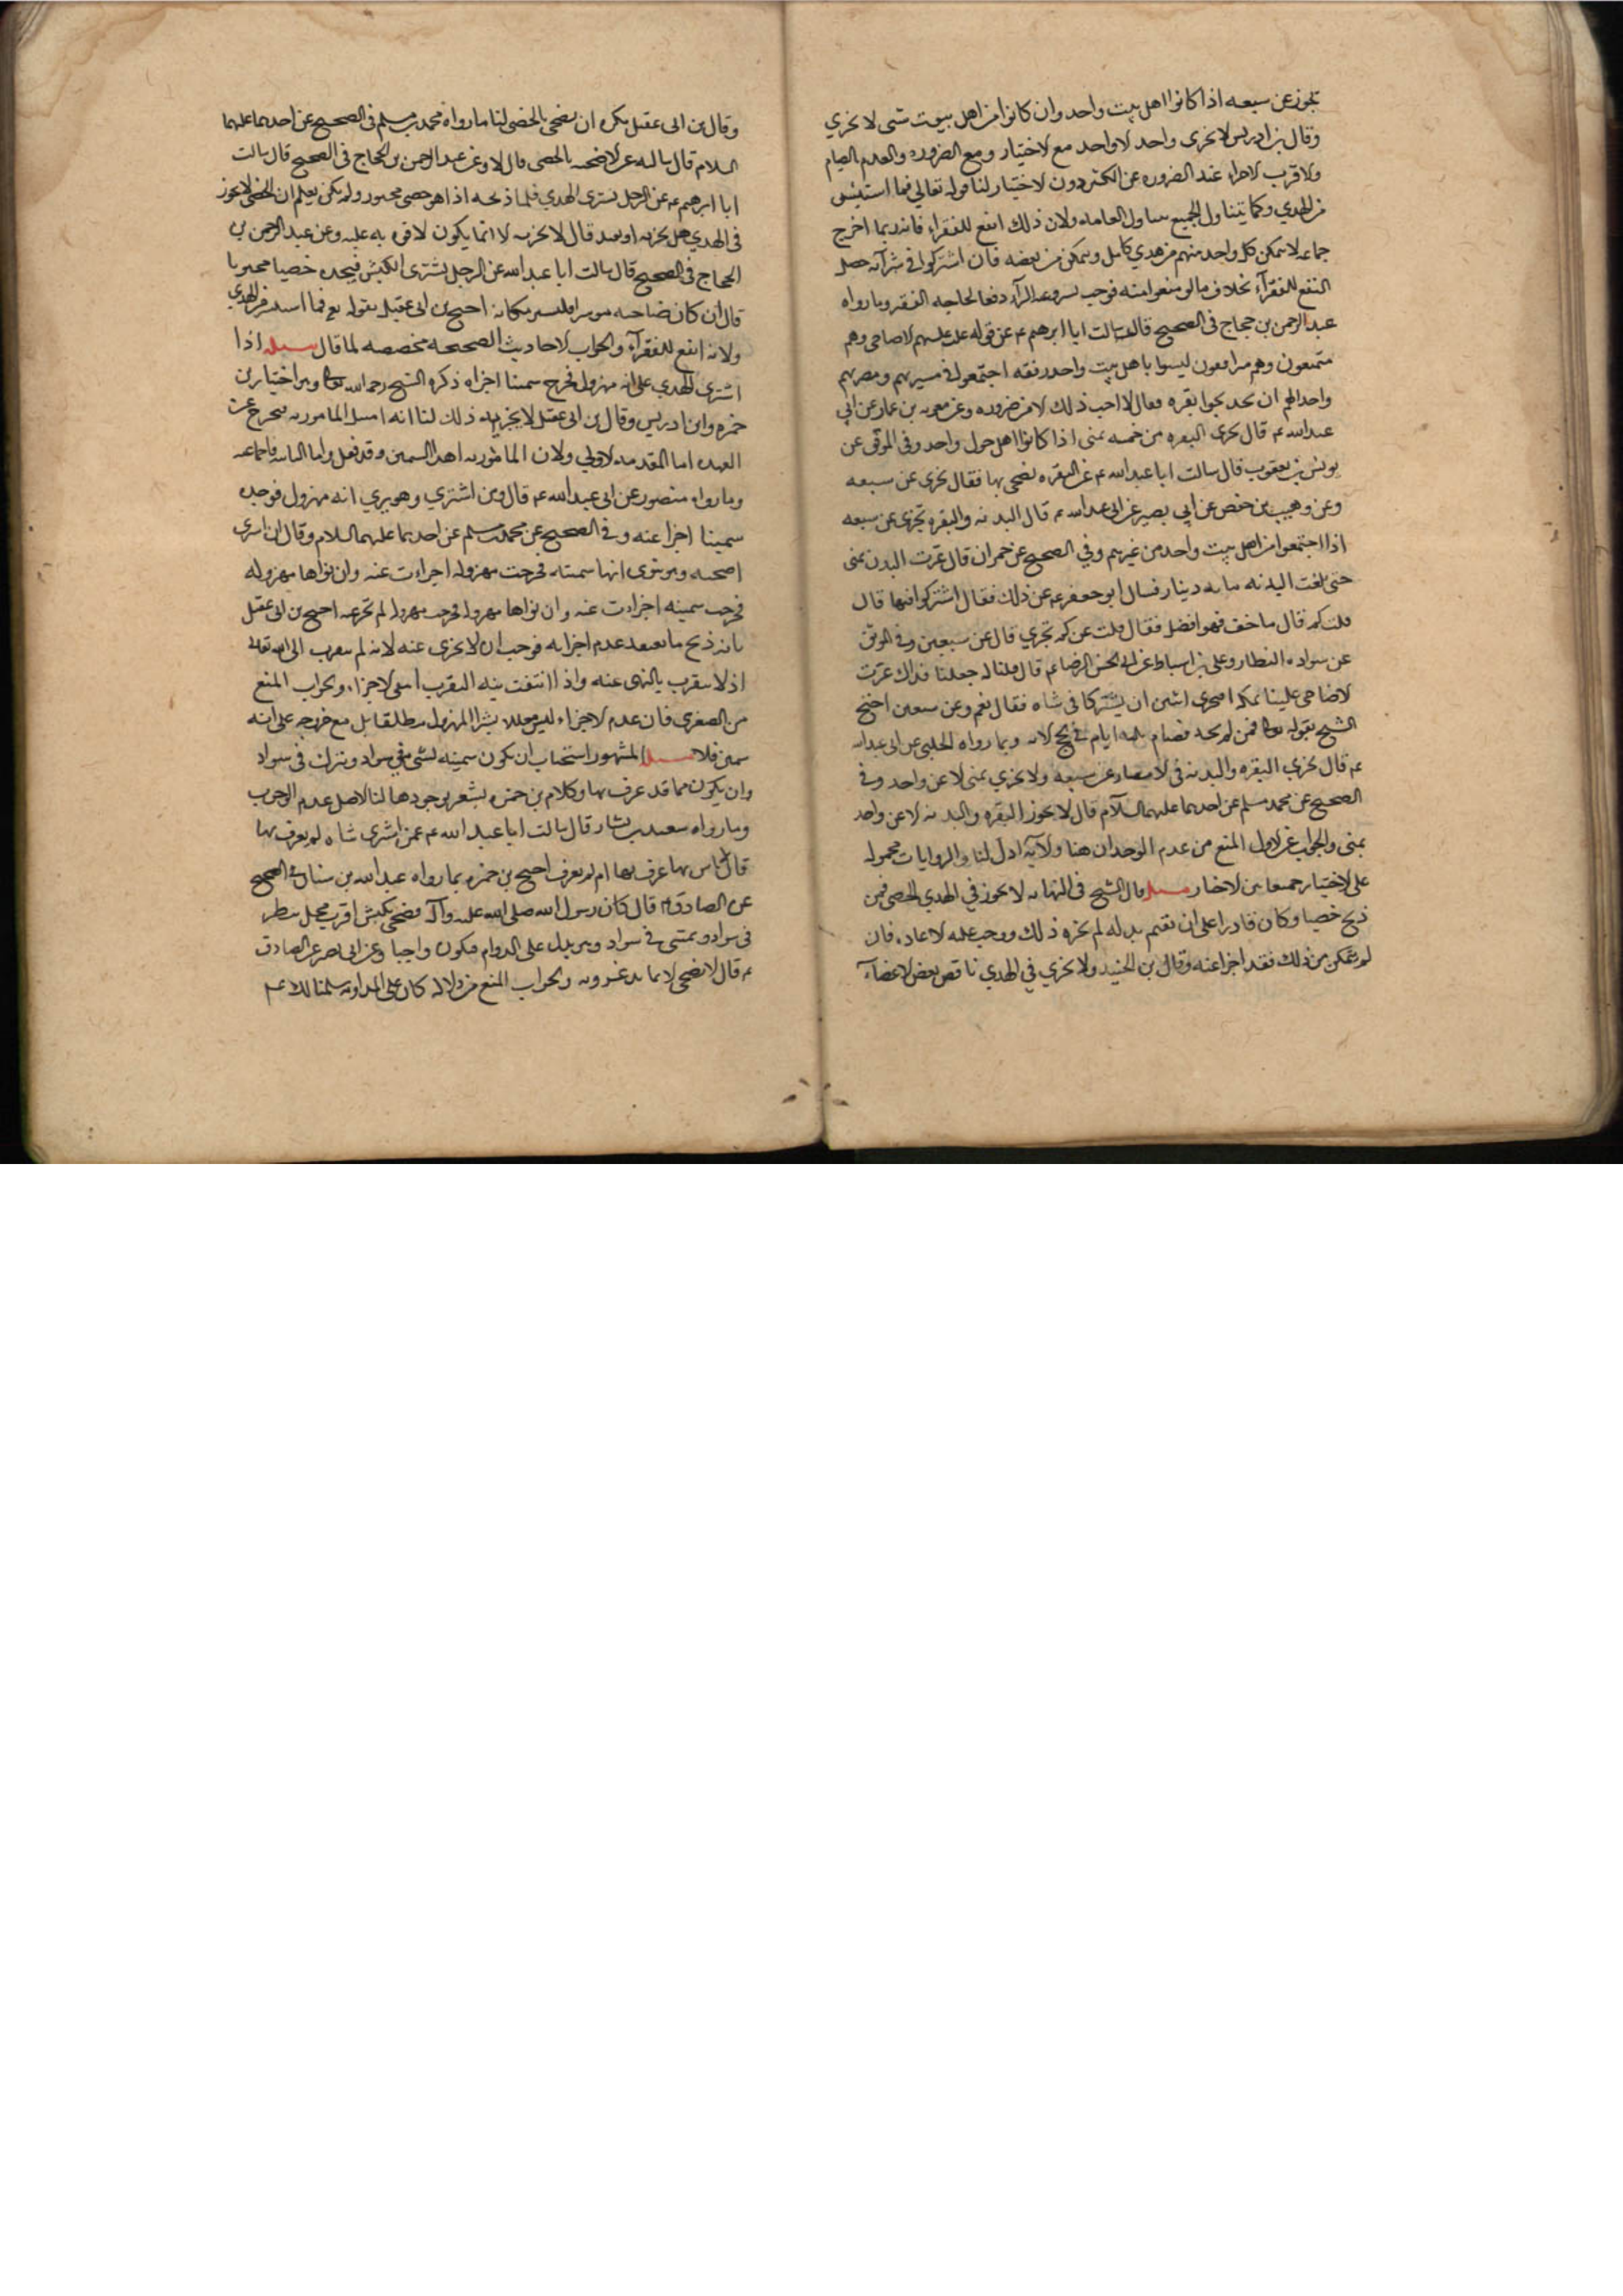 تجوز عن سبعه اذا كانوا اهل بيت واحد وان كانوا من اهل بيوت شتى لا تجزي
وقال بن ادريس لا تجزى واحد لا واحد مع الاختيار ومع الضروره والعدم الصيام
والاقرب الاجزاء عند الضروره عن الكثير دون الاختيار لنا قوله تعالي فما استيسر
من الهدي وكما يتناول الجميع يتناول ولان ذلك انفع للفقراء فانه ربما اخرج
جماعه لا يتمكن كل واحد منهم من هدي كامل ويتمكن من بعضه فان اشتركوا في شرآئه حصل
النفع للفقرآء بخلاف ما لو منعوا منه فوجب دفعا لحاجه الفقير وما رواه
عبد الرحمن بن حجاج فى الصحيح قال سالت ابا ابرهيم ع عن قوم غلت عليهم الاضاحى وهم
متمتعون وهم مترافقون ليسوا باهل بيت واحد رفقه اجتمعوا في مسيرهم ومضربهم
واحد الهم ان يذبحوا بقره فقال لا احب ذلك الا من ضروره وعن معويه بن عمار عن ابي
عبد الله ع قال تجزى البقره من خمسه بمنى اذا كانوا اهل خوان واحد وفى الموثق عن
يونس بن يعقوب قال سالت ابا عبد الله ع عن البقره يضحى بها فقال تجزى عن سبعه
وعن وهيب بن حفص عن ابي بصير عن ابى عبد الله ع قال البدنه والبقره تجزى عن سبعه
اذا اجتمعوا من اهل بيت واحد من غيرهم وفي الصحيح عن حمران قال عزت البدن بمنى
حتى بلغت البدنه مايه دينار فسال ابو جعفر ع عن ذلك فقال اشتركوا فيها قال
قلت كم قال ما خف فهو افضل فقال قلت عن كم تجزي قال عن سبعين وفى الموثق
عن سواده القطار وعلى بن اسباط عن ابى الحسن الرضا ع قال قلنا له جعلنا فداك عزت
الاضاحى علينا بمكه افيجزى اثنين ان يشتركا فى شاه فقال نعم وعن سبعين احتج
الشيخ بقوله تعالى فمن لم يجد فصيام ثلثه ايام في الحج الايه وبما رواه الحلبي عن ابى عبد الله
ع قال تجزي البقره والبدنه فى الامصار عن سبعه ولا تجزي بمنى الا عن واحد وفي
الصحيح عن محمد بن مسلم عن احدهما عليهما السلام قال لا يجوز البقره والبدنه الا عن واحد
بمنى والجواب عن الاول المنع من عدم الوجدان هنا والايه ادل لنا والروايات محموله
على الاختيار جمعا بين الاخبار مسئله قال الشيخ فى النهايه لا يجوز في الهدي الخصى فمن
ذبح خصيا وكان قادرا على ان يقيم بدله لم يجزه ذلك ووجب عليه الاعاده فان
لم يتمكن من ذلك فقد اجزا عنه وقال بن الجنيد ولا يجزي في الهدي ناقص بعض الاعضآء
وقال بن ابى عقيل يكره ان يضحى بالخصى لنا ما رواه محمد بن مسلم فى الصحيح عن احدهما عليهما
السلام قال سالته عن الاضحيه بالخصى قال لا وعن عبد الرحمن بن الحجاج فى الصحيح قال سالت
ابا ابرهيم ع عن الرجل يشترى الهدي فلما ذبحه اذا هو خصى مجبوب ولم يكن يعلم ان الخصى لا يجوز
فى الهدي هل يجزيه او يعيد قال لا يجزيه الا انما يكون لا قوه به عليه وعن عبد الرحمن بن
الحجاج فى الصحيح قال سالت ابا عبد الله عن الرجل يشترى الكبش فيجده خصيا مجبوبا
قال ان كان صاحبه موسرا فليشتر مكانه احتج بن ابى عقيل بقوله تع فما استيسر من الهدي
ولانه انفع للفقرآء والجواب الاحاديث الصحيحه مخصصه لما قال مسئله اذا
اشترى الهدي على انه مهزول فخرج سمينا اجزاه ذكره الشيخ رحمه الله تعالى وهو اختيار بن
حمزه وابن ادريس وقال بن ابى عقيل لا يجزيه ذلك لنا انه امتثل المامور به فيخرج عن
العهده اما المقدمه الاولي ولان المامور به اهدآ السمين وقد فعل واما الثانيه فاجماعيه
وما رواه منصور عن ابى عبد الله ع قال ومن اشتري وهو يري انه مهزول فوجده
سمينا اجزا عنه وفي الصحيح عن محمد بن مسلم عن احدهما عليهما السلام وقال ان اشترى
اضحيه وهو ينوى انها سمينه فخرجت مهزوله اجزات عنه وان نواها مهزوله
فخرجت سمينه اجزات عنه وان نواها مهزوله فخرجت مهزوله لم تجز عنه احتج بن ابى عقيل
بانه ذبح ما يعتقد عدم اجزايه فوجب ان لا يجزى عنه لانه لم يتقرب الى الله تعالى
اذ لا يتقرب بالنهى عنه واذا انتفت نيه التقرب انتفى الاجزاء والجواب المنع
من الصغرى فان عدم الاجزاء ليس معللا بشرا المهزول مطلقا بل مع خروجه على انه
سمين فلا مسئله المشهور استحباب ان يكون سمينه تمشى فى سواد وتبرك فى سواد
وان يكون مما قد عرف بها وكلام بن حمزه يشعر بوجوبها لنا الاصل عدم الوجوب
وما رواه سعيد بن يسار قال سالت ابا عبد الله ع عمن اشترى شاه لم يعرف بها
قال لا باس بها عرف بها ام لم يعرف احتج بن حمزه بما رواه عبد الله بن سنان فى الصحيح
عن الصادق ع قال كان رسول الله صلى الله عليه وآله يضحى بكبش اقرن فحل ينظر
فى سواد ويمشى في سواد وهو يدل على الدوام فيكون واجبا وعن ابى بصير عن الصادق
ع قال لا يضحى الا بما قد عرف به والجواب المنع من دلاله كان على المداومه سلمنا لكن